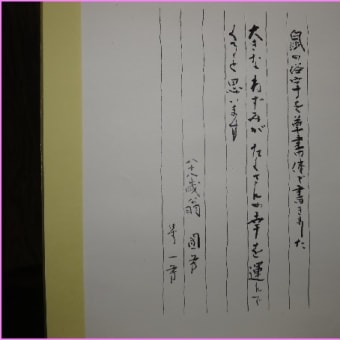 鼠の漢字を草書体で書きました
大きなねずみがたくさんの幸を運んで
くると思います
八十八歳翁